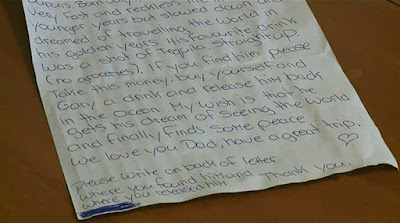 very fast and reckless life in
younger years but slowed down and
dreamed of travelling the world in
his golden years. His favourite drink
was a shot of tequila straight up,
(no groceries). If you find him please
Take this money, buy yourself and
Gary a drink and release him back
in the Ocean. My wish is that he
gets his dream of seeing the world
and finally finds some peace
We love you Dad, have a great trip.
Please write on back of letter
Where you found him and Thank you.
where you released him